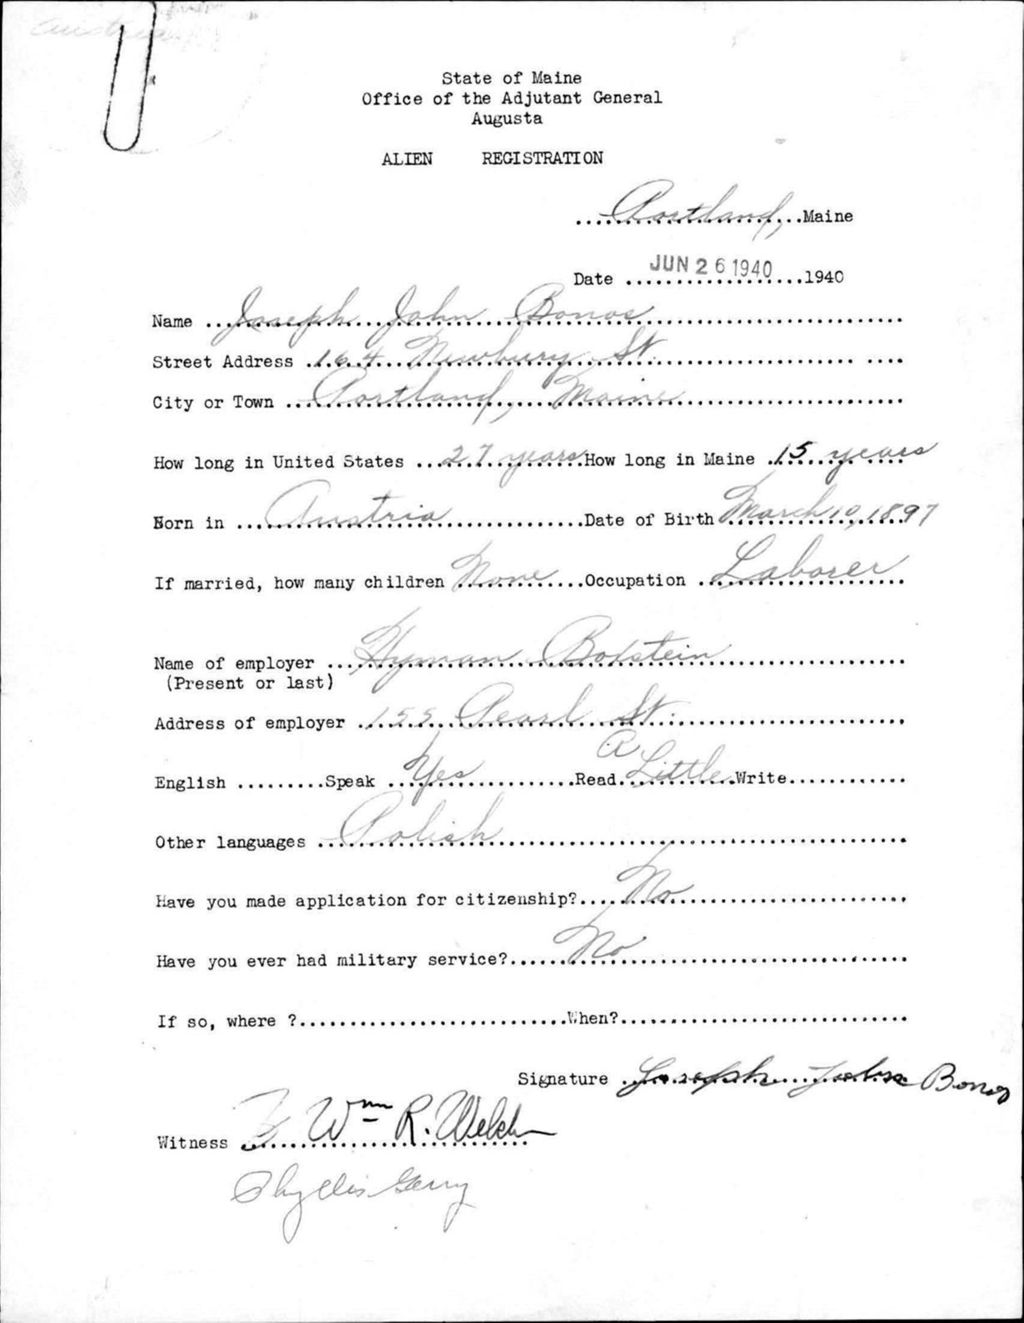 Austria
State of Maine
Office of the Adjutant General
Augusta
ALIEN REGISTRATION
Portland, Maine
Date JUN 26 1940 1940
Name Joseph John Bonos
Street Address 164 Newbury St.
City or Town Portland, Maine
How long in United States 27 years How long in Maine 15 years
Born in Austria Date of Birth March 10, 1897
If married, how many children None Occupation Laborer
Name of employer Hyman Borstein
(Present or last)
Address of employer 155 Pearl St.
English Speak Yes Read A Little Write
Other languages Polish
Have you made application for citizenship? No
Have you ever had military service? No
If so, where ? When?
Signature Joseph John Bonos
Witness Wm R. Welch
Phyllis Gerry